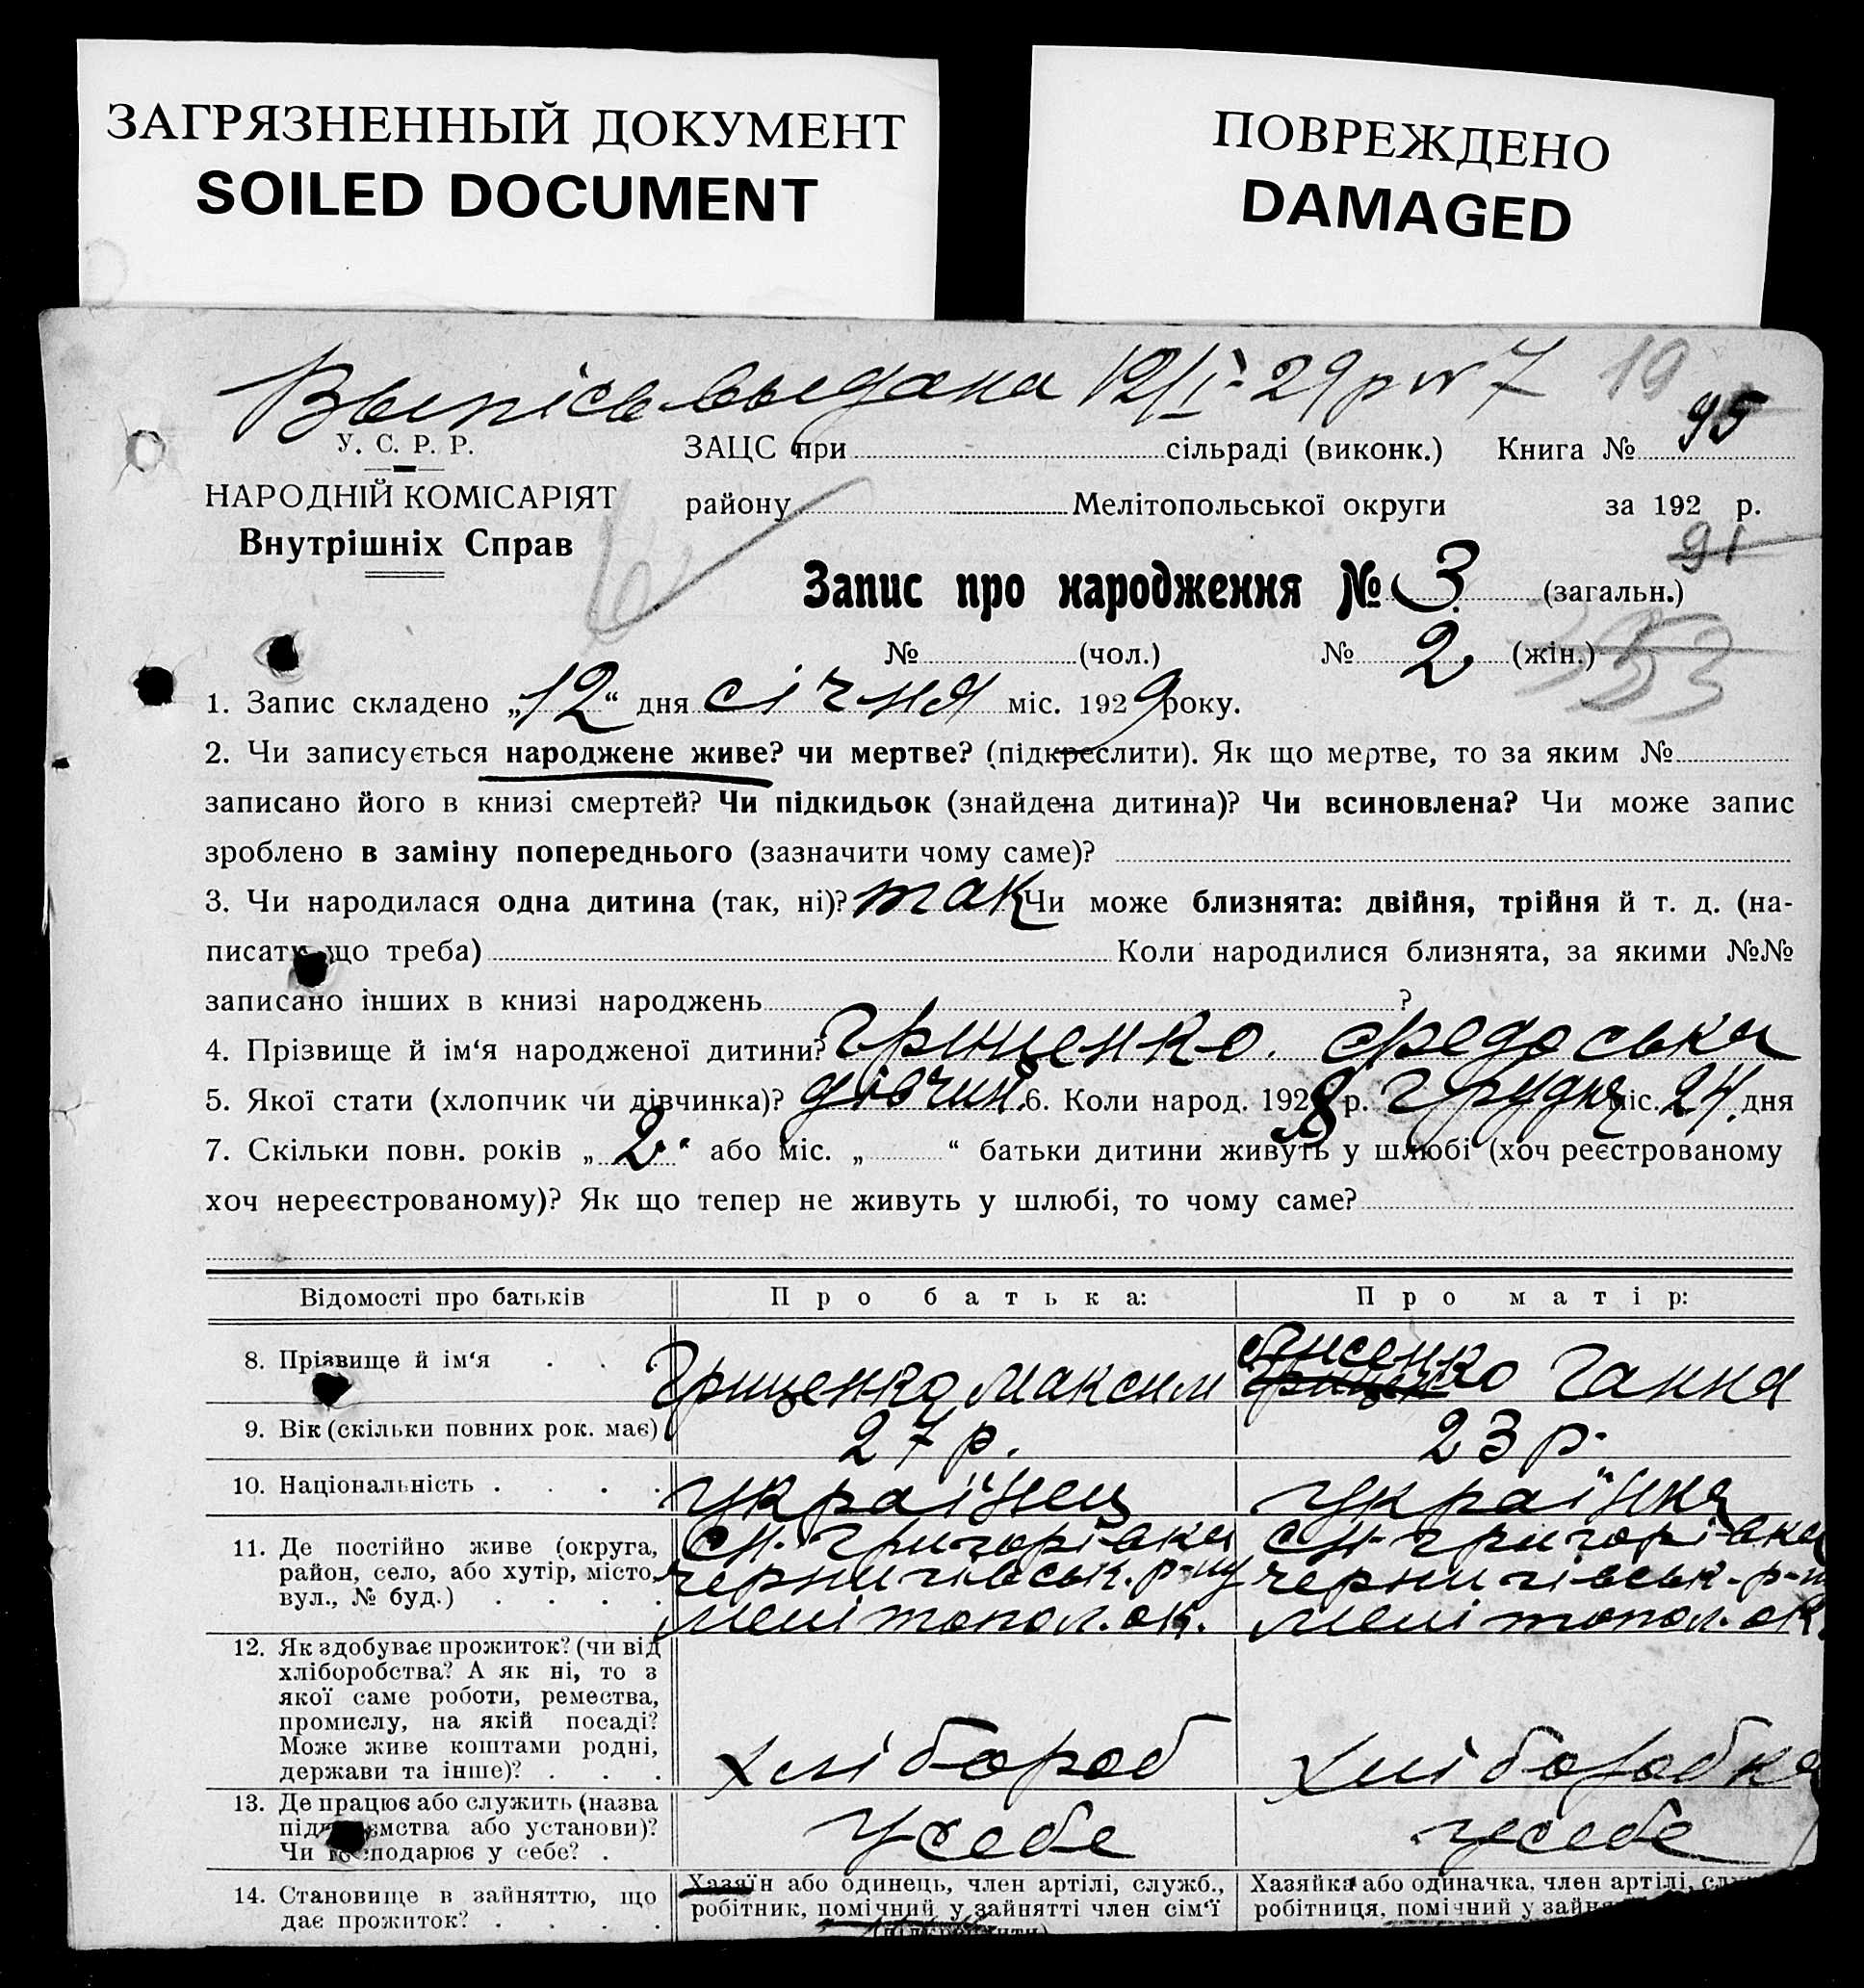 ЗАГРЯЗНЕННЫЙ ДОКУМЕНТ
SOILED DOCUMENT
ПОВРЕЖДЕНО
DAMAGED
Выпісь выдана 12/I-29р № 7 19
95
У. С. Р. Р.
ЗАЦС при сільраді (виконк.) Книга №
НАРОДНІЙ КОМІСАРІЯТ
району Мелітопольської округи за 192 р.
Внутрішніх Справ
91
Запис про народження № 3 (загальн.)
№ (чол.) № 2 (жін.)
353
1. Запис складено „12“ дня січня міс. 1929 року.
2. Чи записується народжене живе? чи мертве? (підкреслити). Як що мертве, то за яким №
записано його в книзі смертей? Чи підкидьок (знайдена дитина)? Чи всиновлена? Чи може запис
зроблено в заміну попереднього (зазначити чому саме)?
3. Чи народилася одна дитина (так, ні)? так Чи може близнята: двійня, трійня й т. д. (на-
писати що треба) Коли народилися близнята, за якими №№
записано інших в книзі народжень ?
4. Прізвище й ім‘я народженої дитини? Грищенко. Федоська
5. Якої стати (хлопчик чи дівчинка)? дівчин. 6. Коли народ. 1928 р. Грудня міс. 24 дня
7. Скільки повн. років „2“ або міс. „ “ батьки дитини живуть у шлюбі (хоч реєстрованому
хоч нереєстрованому)? Як що тепер не живуть у шлюбі, то чому саме?
Відомості про батьків Про батька: Про матір:
Лисенко
8. Прізвище й ім‘я . . . Грищенко Максим Грищенко Ганна
9. Вік (скільки повних рок. має) 27 р. 23 р.
10. Національність . . . . українец українка
11. Де постійно живе (округа,
район, село, або хутір, місто,
вул., № буд.) . . . .
сн. Григорівка
чернигівськ. р-ну
мелітопол. ок.
сн. Григорівка
чернигівськ. р-н
мелітопол. ок.
12. Як здобуває прожиток? (чи від
хліборобства? А як ні, то з
якої саме роботи, ремества,
промислу, на якій посаді?
Може живе коштами родні,
держави та інше)? . . .
хлібороб хлібородка
13. Де працює або служить (назва
підприємства або установи)?
Чи господарює у себе? .
у себе у себе
14. Становище в зайняттю, що
дає прожиток? . . . .
Хазяїн або одинець, член артілі, служб.,
робітник, помічний у зайнятті член сім‘ї
(підкреслити)
Хазяйка або одиначка, член артілі,
робітниця, помічний у